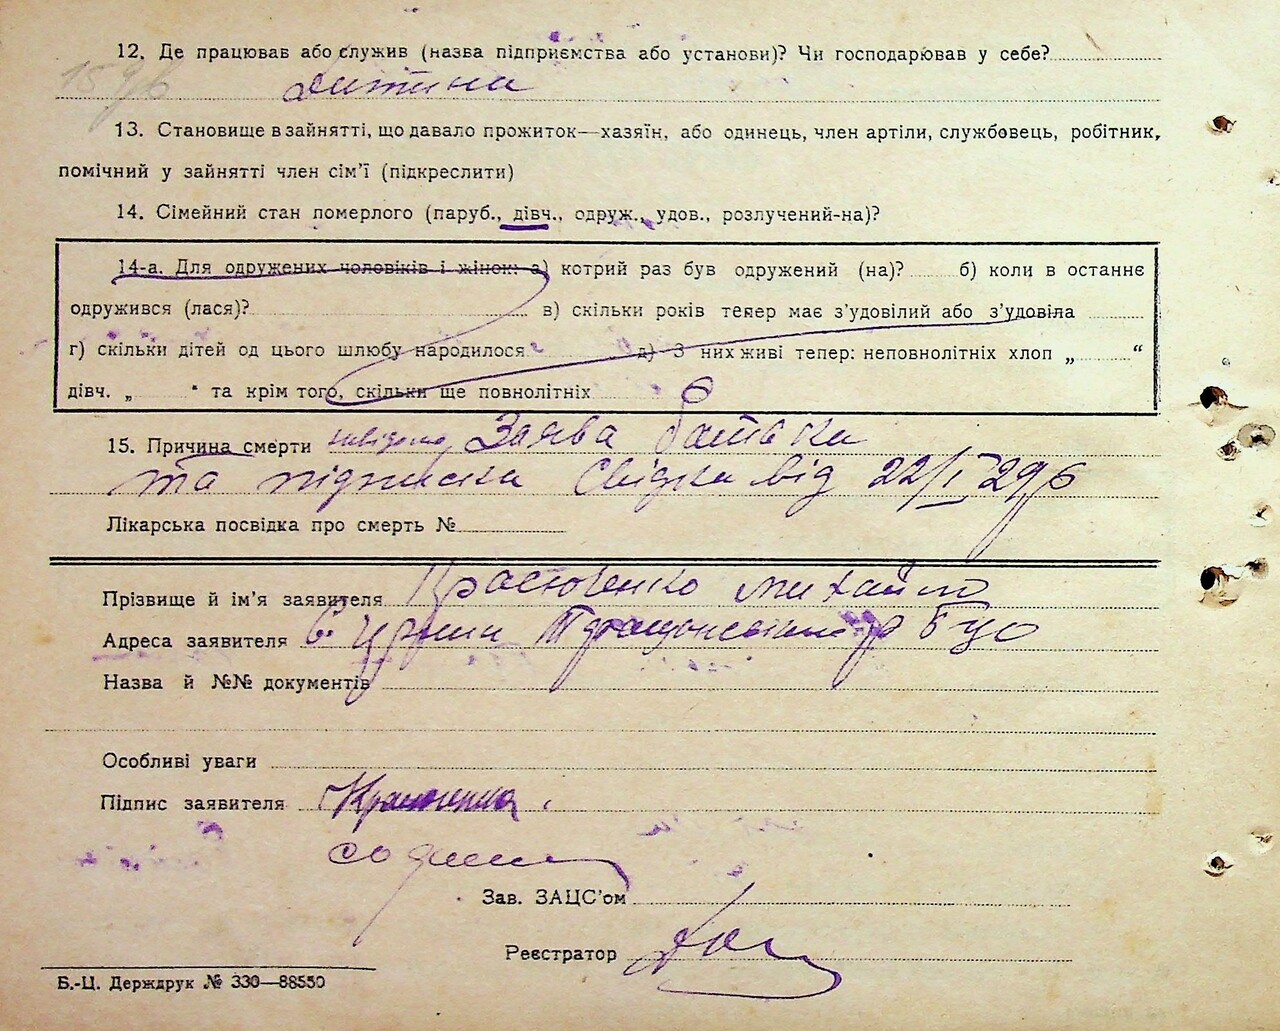 12. Де працював або служив (назва підприємства або установи)? Чи господарював у себе?
Дитина
13. Становище в зайнятті, що давало прожиток—хазяїн, або одинець, член артіли, службовець, робітник,
помічний у зайнятті член сім'ї (підкреслити)
14. Сімейний стан померлого (паруб., дівч., одруж., удов., розлучений-на)?
14-а. Для одружених чоловіків і жінок: а) котрий раз був одружений (на)? б) коли в останнє
одружився (лася)? в) скільки років тепер має з'удовілий або з'удовіла
г) скільки дітей од цього шлюбу народилося д) З них живі тепер: неповнолітніх хлоп „ “
дівч. „ “ та крім того, скільки ще повнолітніх
15. Причина смерти невідомо, Заява батька
та підписка Свідка від 22/I 29р
Лікарська посвідка про смерть №
Прізвище й ім'я заявителя Михайло
Адреса заявителя
Назва й №№ документів
Особливі уваги
Підпис заявителя
Зав. ЗАЦС'ом
Реєстратор
Б.-Ц. Держдрук № 330—88550